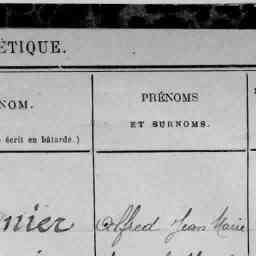 ÉTIQUE.
NOM.
PRÉNOMS
ET SURNOMS.
écrit en bâtarde.)
nier Alfred Jean Marie